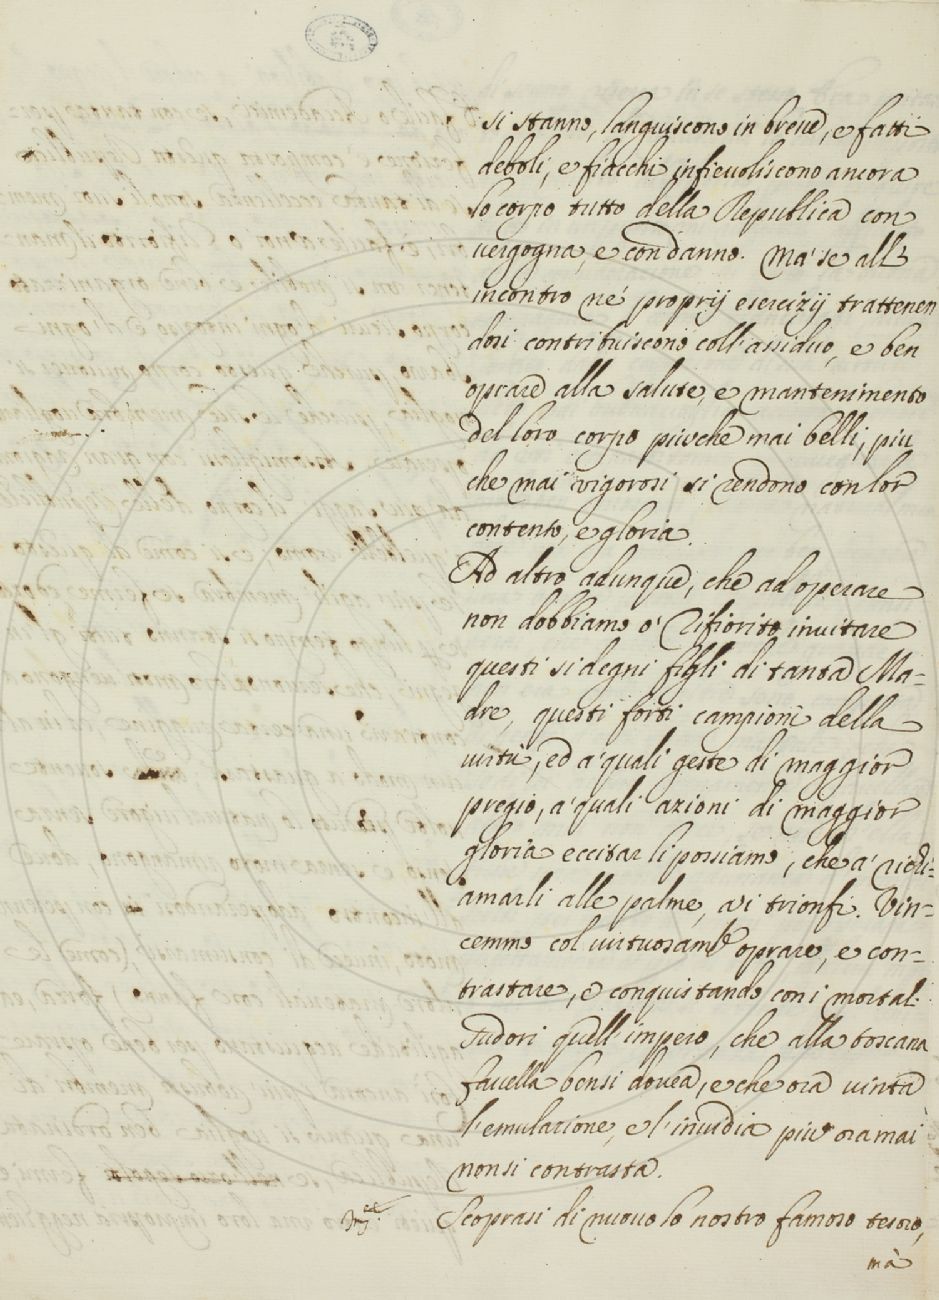 si stanno, languiscono in breve, e fatti
deboli, e fiacchi infievoliscono ancora
lo corpo tutto della Republica con
vergogna, e con danno. Ma' se all'
incontro ne' proprij esercizij trattenen
dosi contribuiscono coll'assiduo, e ben
oprare alla salute, e mantenimento
del loro corpo piucche mai belli, piu
che mai vigorosi si rendono con lor
contento, e gloria.
Ad altro adunque, che ad operare
non dobbiamo o' Rifiorito invitare
questi si degni figli di tanta Ma-
dre, questi forti campioni della
virtù, ed a' quali geste di maggior
pregio, a' quali azioni di maggior
gloria eccitar li possiamo, che a' richi-
amarli alle palme, ai trionfi. Vin-
cemmo col virtuosamte oprare, e con-
trastare, e conquistando con i mortal.
sudori quell'impero, che alla toscana
favella bensi dovea, e che ora vinta
l'emulazione, e l'invidia piu oramai
non si contrasta.
Scoprasi di nuovo lo nostro famoso tesoro,
mà